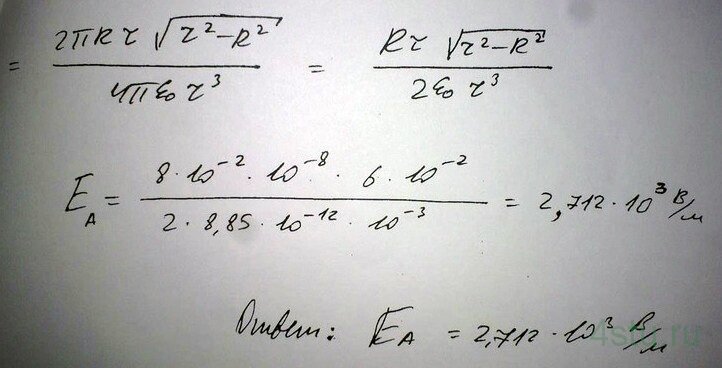 = 2πRτ √(r²-R²) / 4πε₀ r³ = Rτ √(r²-R²) / 2ε₀ r³
E_A = 8·10⁻²·10⁻⁸·6·10⁻² / 2·8,85·10⁻¹²·10⁻³ = 2,712·10³ В/м
Ответ: E_A = 2,712·10³ В/м